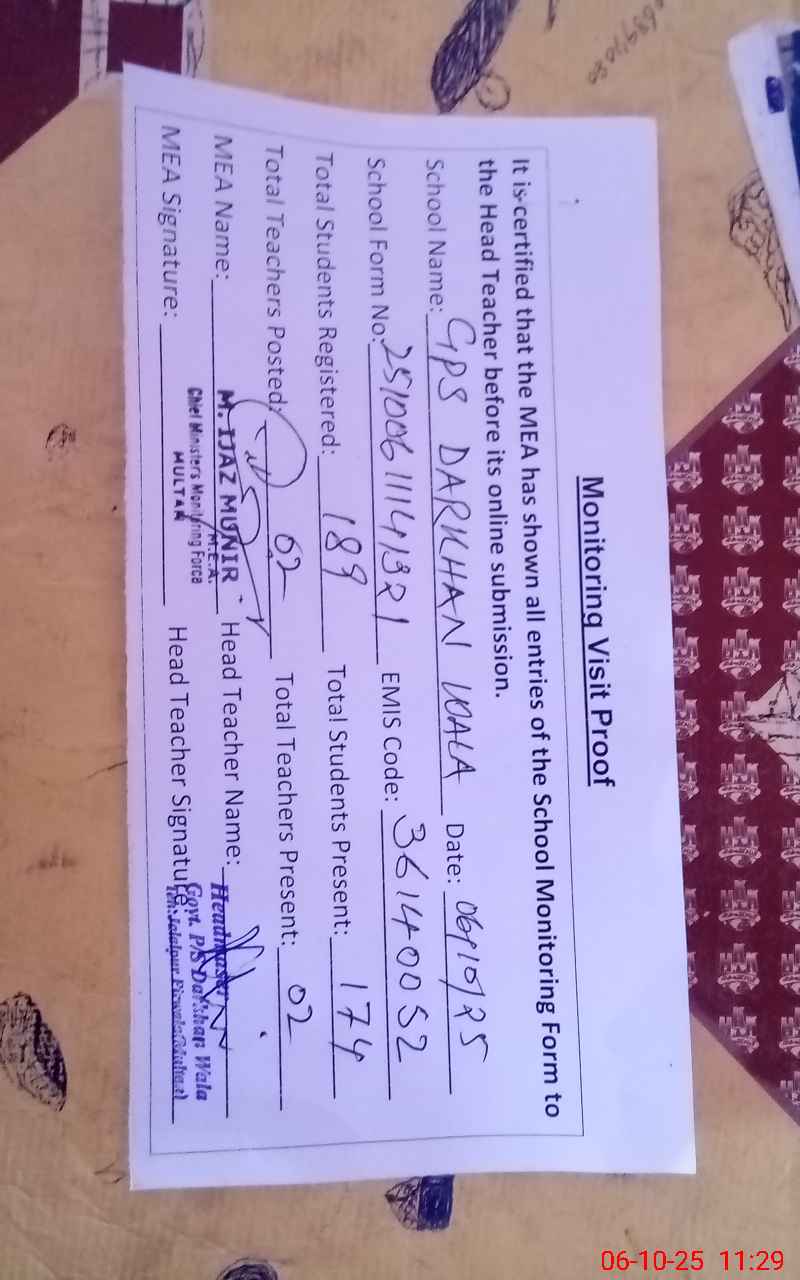 Monitoring Visit Proof
It is certified that the MEA has shown all entries of the School Monitoring Form to
the Head Teacher before its online submission.
School Name: GPS DARKHAN WALA Date: 06/10/25
School Form No: EMIS Code: 36140052
Total Students Registered: 189 Total Students Present: 174
Total Teachers Posted: 02 Total Teachers Present: 02
MEA Name: M. IJAZ MUNIR Head Teacher Name: Headmaster
M.E.A.
Chief Minister's Monitoring Force
MULTAN
Govt. P/S Darkhan Wala
MEA Signature: Head Teacher Signature:
Teh: Jalalpur Pirwala (Multan)
06-10-25 11:29